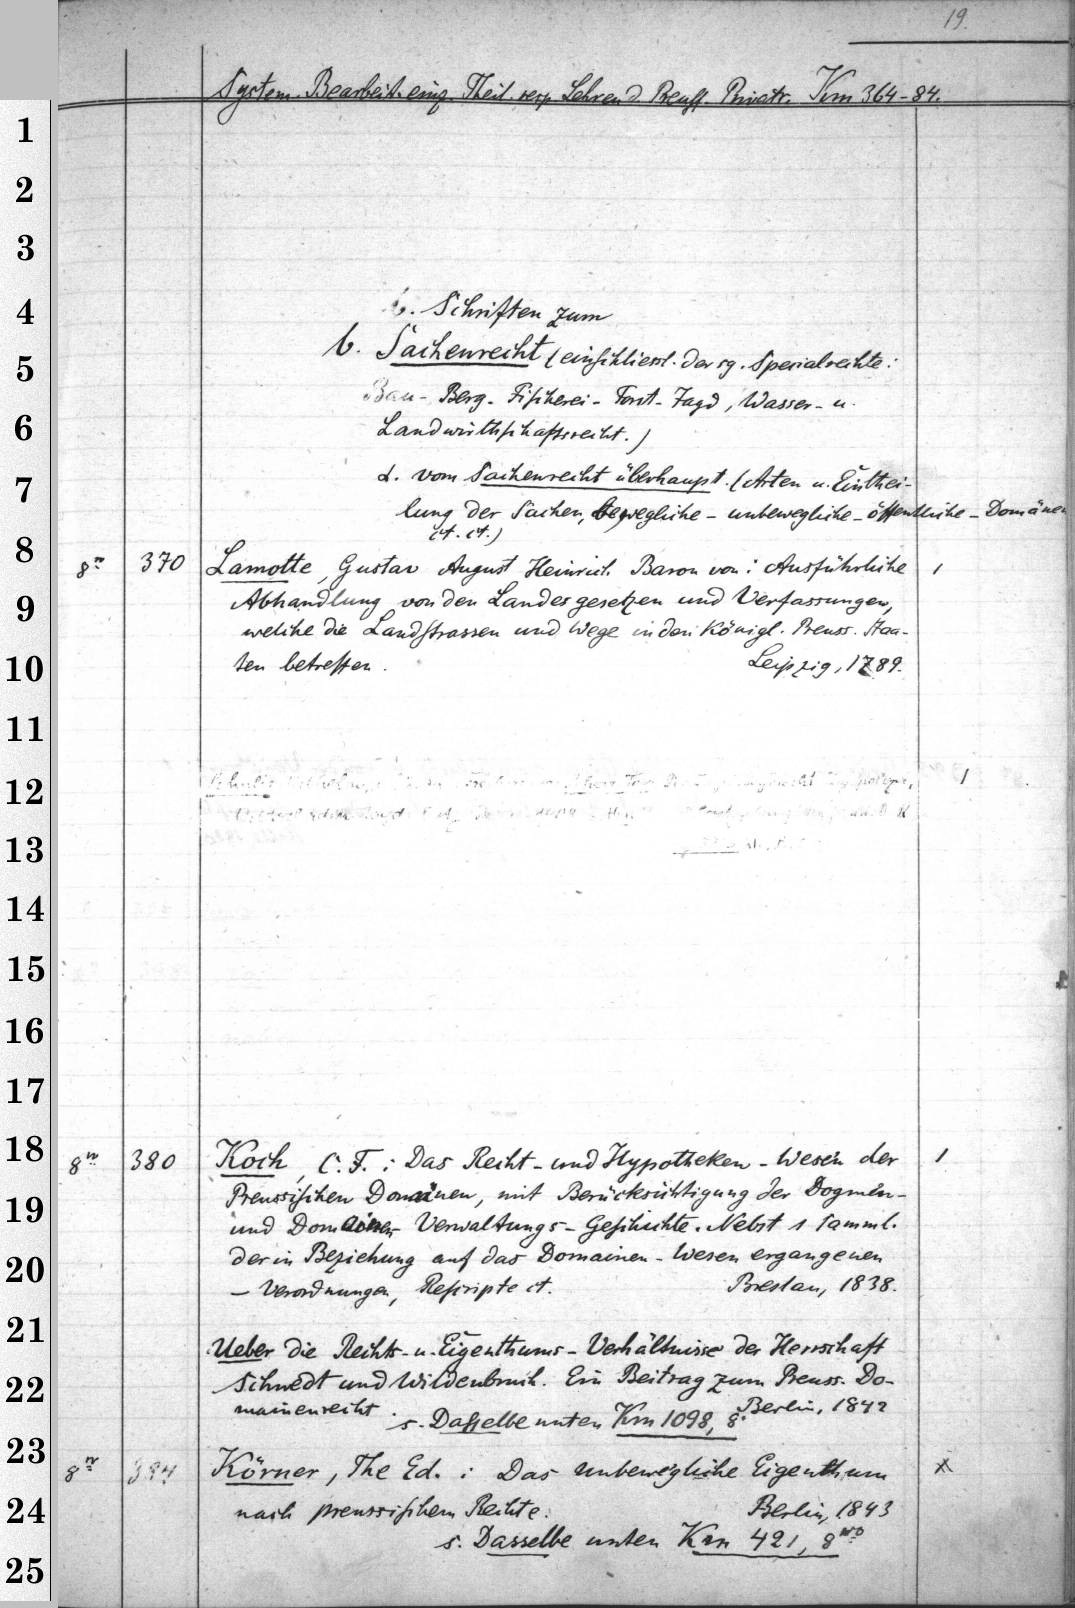 19.
System. Bearbeit. einz. Theil. resp. Lehren d. Preuss. Privatr. Km 364-84.
1
2
3
4
b. Schriften zum
5
b. Sachenrecht (einschliessl. der sg. Specialrechte:
Bau- Berg- Fischerei- Forst- Jagd, Wasser- u.
6
Landwirthschaftsrecht.)
7
α. vom Sachenrecht überhaupt. (Arten u. Einthei-
lung der Sachen, bewegliche - unbewegliche - öffentliche - Domänen
ct. ct.)
8
8º 370 Lamotte, Gustav August Heinrich Baron von: Ausführliche 1
9
Abhandlung von den Landesgesetzen und Verfassungen,
welche die Landstrassen und Wege in den Königl. Preuss. Staa-
10
ten betreffen. Leipzig, 1789.
11
12
1
13
14
15
16
17
18
8vº 380 Koch, C. F.: Das Recht- und Hypotheken-Wesen der 1
19
Preussischen Domainen, mit Berücksichtigung der Dogmen-
und Domainen Verwaltungs-Geschichte. Nebst 1 Samml.
20
der in Beziehung auf das Domainen-Wesen ergangenen
- Verordnungen, Rescripte ct. Breslau, 1838.
21
Ueber die Rechts- u. Eigenthums-Verhältnisse der Herrschaft
22
Schwedt und Wildenbruch. Ein Beitrag zum Preuss. Do-
mainenrecht. Berlin, 1842
s. Dasselbe unten Km 1098, 8º
23
8vº 384 Körner, The Ed.: Das unbewegliche Eigenthum x
24
nach preussischem Rechte. Berlin, 1843
s. Dasselbe unten Km 421, 8vo
25